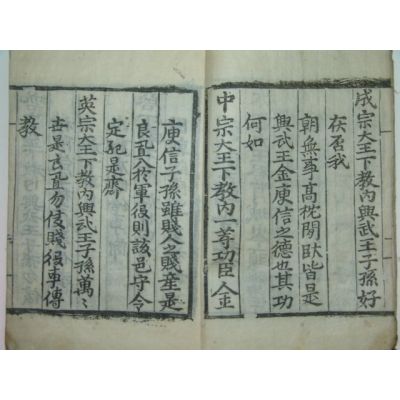 成宗大王下教內興武王子孫好
在否我
朝無事高枕閑臥皆是
興武王金庾信之德也其功
何如
中宗大王下教內一等功臣金
庾信子孫雖賤人之賤產是
良置入於軍役則該邑守令
定配是齊
英宗大王下教內興武王子孫萬〻
世是良置勿侵賤役事傳
教